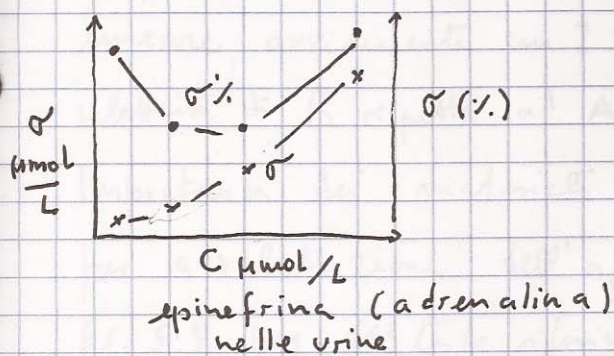 σ
μmol
L
σ%
σ
σ (%)
C μmol/L
epinefrina (adrenalina)
nelle urine